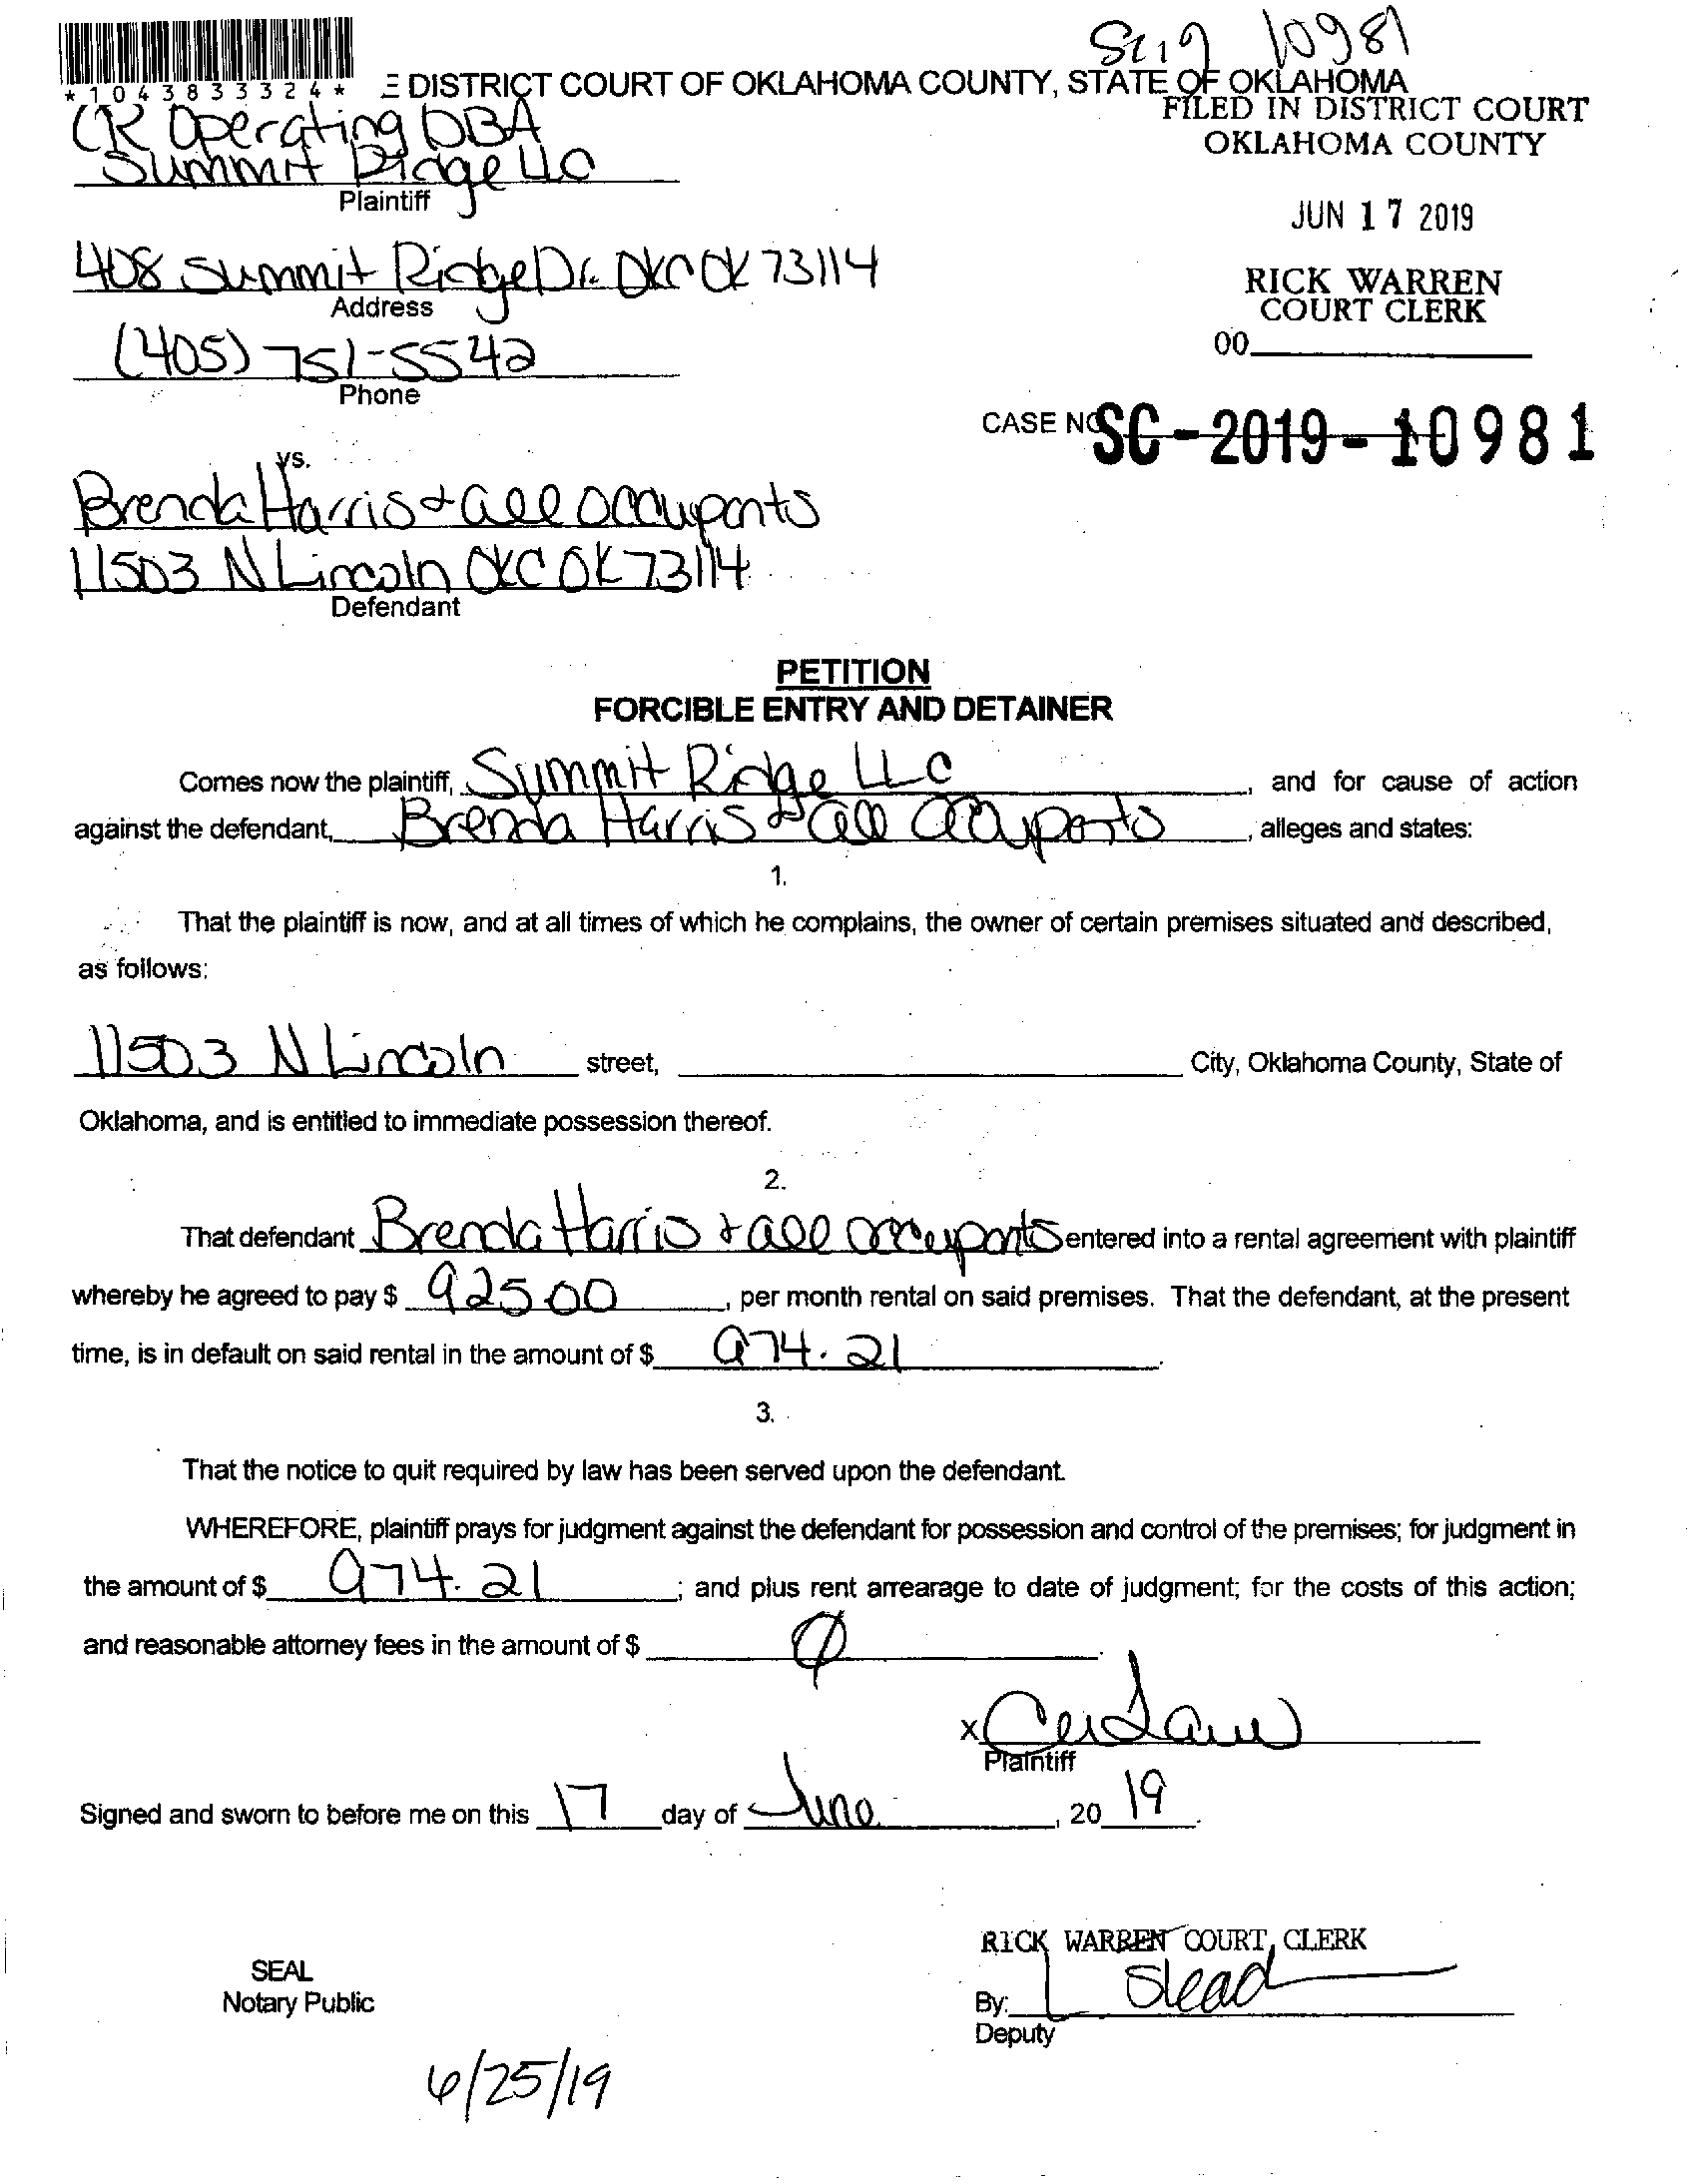 SC19 10981
*1043833324*
E DISTRICT COURT OF OKLAHOMA COUNTY, STATE OF OKLAHOMA
FILED IN DISTRICT COURT
OKLAHOMA COUNTY
CR Operating DBA
Summit Ridge LLC
Plaintiff
JUN 17 2019
408 Summit Ridge Dr. OKC OK 73114
Address
RICK WARREN
COURT CLERK
00
(405) 751-5542
Phone
CASE NO SC-2019-10981
vs.
Brenda Harris + all occupants
11503 N Lincoln OKC OK 73114
Defendant
PETITION
FORCIBLE ENTRY AND DETAINER
Comes now the plaintiff, Summit Ridge LLC, and for cause of action
against the defendant, Brenda Harris + all occupants, alleges and states:
1.
That the plaintiff is now, and at all times of which he complains, the owner of certain premises situated and described,
as follows:
11503 N Lincoln street, City, Oklahoma County, State of
Oklahoma, and is entitled to immediate possession thereof.
2.
That defendant Brenda Harris + all occupants entered into a rental agreement with plaintiff
whereby he agreed to pay $ 925.00, per month rental on said premises. That the defendant, at the present
time, is in default on said rental in the amount of $ 974.21.
3.
That the notice to quit required by law has been served upon the defendant.
WHEREFORE, plaintiff prays for judgment against the defendant for possession and control of the premises; for judgment in
the amount of $ 974.21; and plus rent arrearage to date of judgment; for the costs of this action;
and reasonable attorney fees in the amount of $ 0.
x
Plaintiff
Signed and sworn to before me on this 17 day of June, 20 19.
RICK WARREN COURT CLERK
SEAL
Notary Public
By:
Deputy
6/25/19